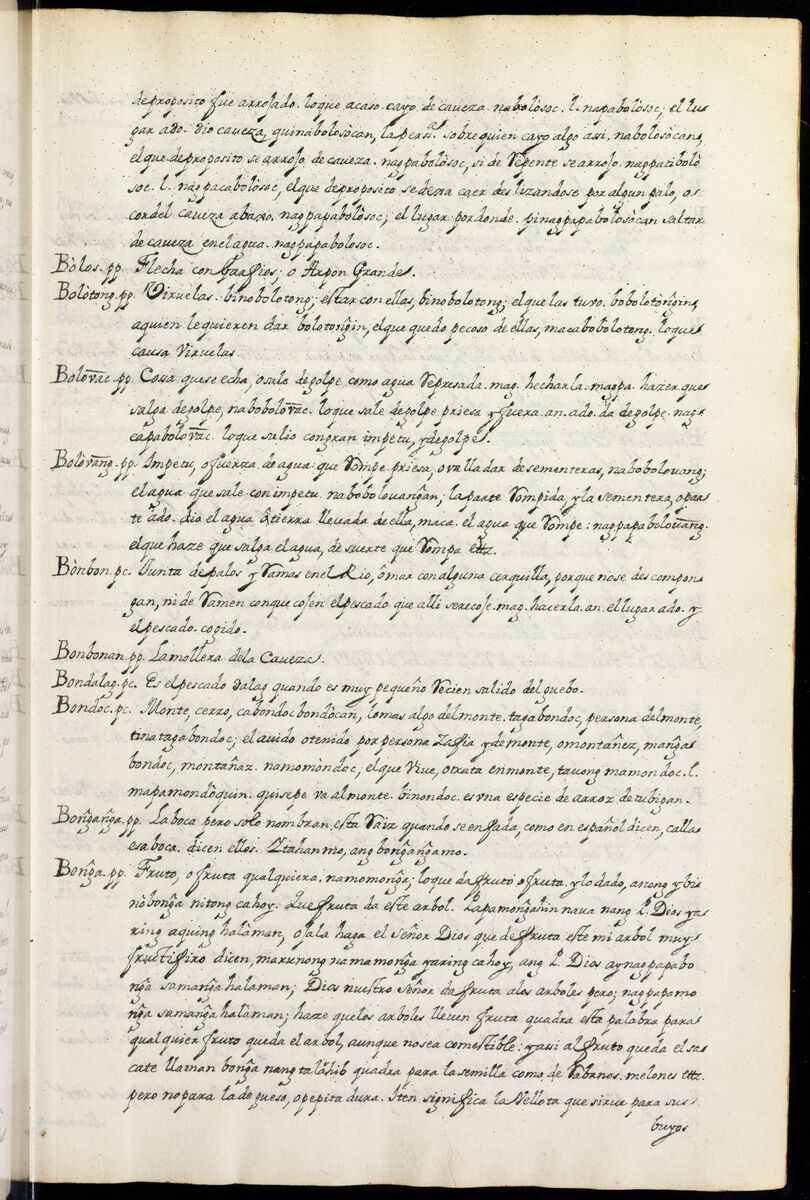 de proposito fue arrojado. loque acaso cayo de caveza. nabolòsoc. l. napabolòsoc; el lu-
gar ado. dio caveza, quinabolosòcan, la pers.ª sobre quien cayo algo asi. nabolosòcang,
el que de proposito se arrojo de caveza. nagpabolòsoc, si de Repente se arrojo. nagpatibolò
soc. l. nagpacabolòsoc, el que de proposito se dexa caer deslizandose por algun palo, o
cordel caveza abaxo. nagpapabolòsoc; el lugar por donde. pinagpapabolosòcan saltar
de caveza en el agua. nagpapabolosoc.
Bòlos. pp. Flecha con Garfios; o Arpon Grande.
Bolòtong. pp. Viruelas. binobolotong; estar con ellas, binobolotong; el que las tuvo. bobolotòngin,
aquien le quieren dar bolotongin, el que quedo pecoso de ellas, macabobolotong. loque
causa Viruelas.
Bolovac. pp. Cosa que se echa, o sale de golpe como agua Represada. mag. hecharla. magpa. hazer que
salga de golpe, nabobolovac. loque sale de golpe priesa y fuera. an. ado. da de golpe. nag-
capabolovac. loque salio con gran impetu, y de golpe.
Bolòvang. pp. Impetu, o fuerza de agua que Rompe priesa, o valladar de sementeras, nabobolovang;
el agua que sale con impetu. nabobolovangan; la parte Rompida, y la sementera, o par-
te ado. dio el agua ò tierra llevada de ella, maca. el agua que Rompe. nagpapabolovang.
el que haze que salga el agua, de suerte que Rompa ettz.
Bònbon. pc. Junta de palos y Ramas en el Rio, ò mar con alguna cerquilla, porque no se descompon-
gan, ni deRamen con que cojen el pescado que alli se recoje. mag. hacerla. an. el lugar ado. y
el pescado cogido.
Bonbonan. pp. La mollera de la Caveza.
Bondalag. pc. Es el pescado dalag quando es muy pequeño Recien salido del guebo.
Bondòc. pc. Monte, cerro, cabondocbondòcan, lomas algo del monte. tagabondoc, persona del monte,
tinatagabondoc; el avido o tenido por persona Zafia y de monte, o montañez, manga
bondoc, montañaz. namomòndoc, el que Vive, o trata en monte, tavong mamondoc. l.
mapamondòquin. quisepe va al monte. binondoc. es vna especie de arroz de tubigan.
Bongànga. pp. La boca pero solo nombran esta Raiz quando se enfada, como en español dicen, calla
esa boca. dicen ellos. Itahan mo, ang bongangamo.
Bonga. pp. Fruto, o fruta qualquiera. namomonga; loque da fruto o fruta. y lo dado, anong ybi-
nòbonga nitong cahoy. Que fruta da este arbol. Papamongahin nava nang P. Dios ya-
ring aquing halàman, ojala haga el Señor Dios que de fruto este mi arbol muy
fructifero dicen, marunong namamonga yaring cahoy, ang P. Dios ay nagpapabo
nga samanga halaman; Dios nuestro Señor da fruta a los arboles pero; nagpapamo
nga samanga halàman; haze que los arboles lleven fruta quadra esta palabra para
qualquier fruto que da el arbol, aunque no sea comestible: y asi al fruto que da el sa-
cate llaman bonga nang talàhib quadra para la semilla como de Rabanos. melones ettz.
pero no para la de gueso, o pepita dura. Iten significa la Vellota que sirve para sus
buyos